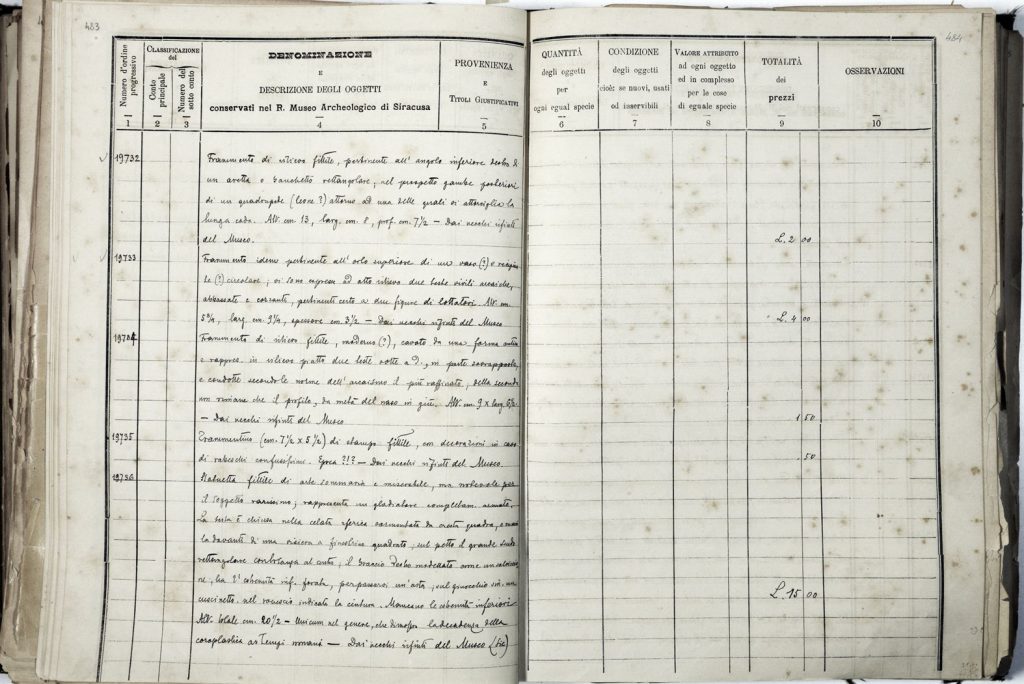 483
Numero d'ordine progressivo
CLASSIFICAZIONE del
Conto principale
Numero del sotto conto
DENOMINAZIONE
E
DESCRIZIONE DEGLI OGGETTI
conservati nel R. Museo Archeologico di Siracusa
PROVENIENZA
E
TITOLI GIUSTIFICATIVI
1 2 3 4 5
19732 Frammento di rilievo fittile, pertinente all' angolo inferiore destro di
un aretta o banchetto rettangolare; nel prospetto gambe posteriori
di un quadrupede (leone?) attorno ad una delle quali si attorciglia la
lunga coda. Alt. cm 13, larg. cm. 8, prof. cm. 7½ — Dai vecchi rifiuti
del Museo.
19733 Frammento idem pertinente all' orlo superiore di un vaso (?) o
(?) circolare; vi sono espresse ad alto rilievo due teste virili arcaiche,
abbassate e cozzanti, pertinenti certo a due figure di lottatori. Alt. cm.
5¾, larg. cm. 9¼, spessore cm. 3½ — Dai vecchi rifiuti del Museo
19734 Frammento di rilievo fittile, moderno (?), cavato da una forma antica
e rappres. in rilievo piatto due teste volte a d., in parte sovrapposte,
e condotte secondo le norme dell' arcaismo il più raffinato; della seconda
non rimane che il profilo, da metà del naso in giù. Alt. cm. 9 x larg. 6½
— Dai vecchi rifiuti del Museo
19735 Frammentino (cm. 7½ x 5½) di stampo fittile, con decorazioni in cavo
di rabeschi confusissimi. Epoca ?!? — Dai vecchi rifiuti del Museo.
19736 Statuetta fittile di arte sommaria e miserabile, ma notevole per
il soggetto rarissimo; rappresenta un gladiatore completam. armato.
La testa è chiusa nella celata sferica sormontata da cresta quadra, e
davanti d' una visiera a finestrine quadrate; sul petto il grande scudo
rettangolare con al centro; il braccio destro modellato come un
ne, ha l' estremità inf. forata, per passarvi un' asta; sul ginocchio sin. un
cuscinetto. nel rovescio indicata la cintura. Mancano le estremità inferiori
Alt. totale cm. 20½ — Unicum nel genere, che dimostra la decadenza della
coroplastica ai tempi romani — Dai vecchi rifiuti del Museo (sic)
484
QUANTITÀ
degli oggetti
per
ogni egual specie
CONDIZIONE
degli oggetti
cioè: se nuovi, usati
od inservibili
VALORE ATTRIBUITO
ad ogni oggetto
ed in complesso
per le cose
di eguale specie
TOTALITÀ
dei
prezzi
OSSERVAZIONI
6 7 8 9 10
L. 2 00
L. 4 00
1 50
. 50
L. 15 00